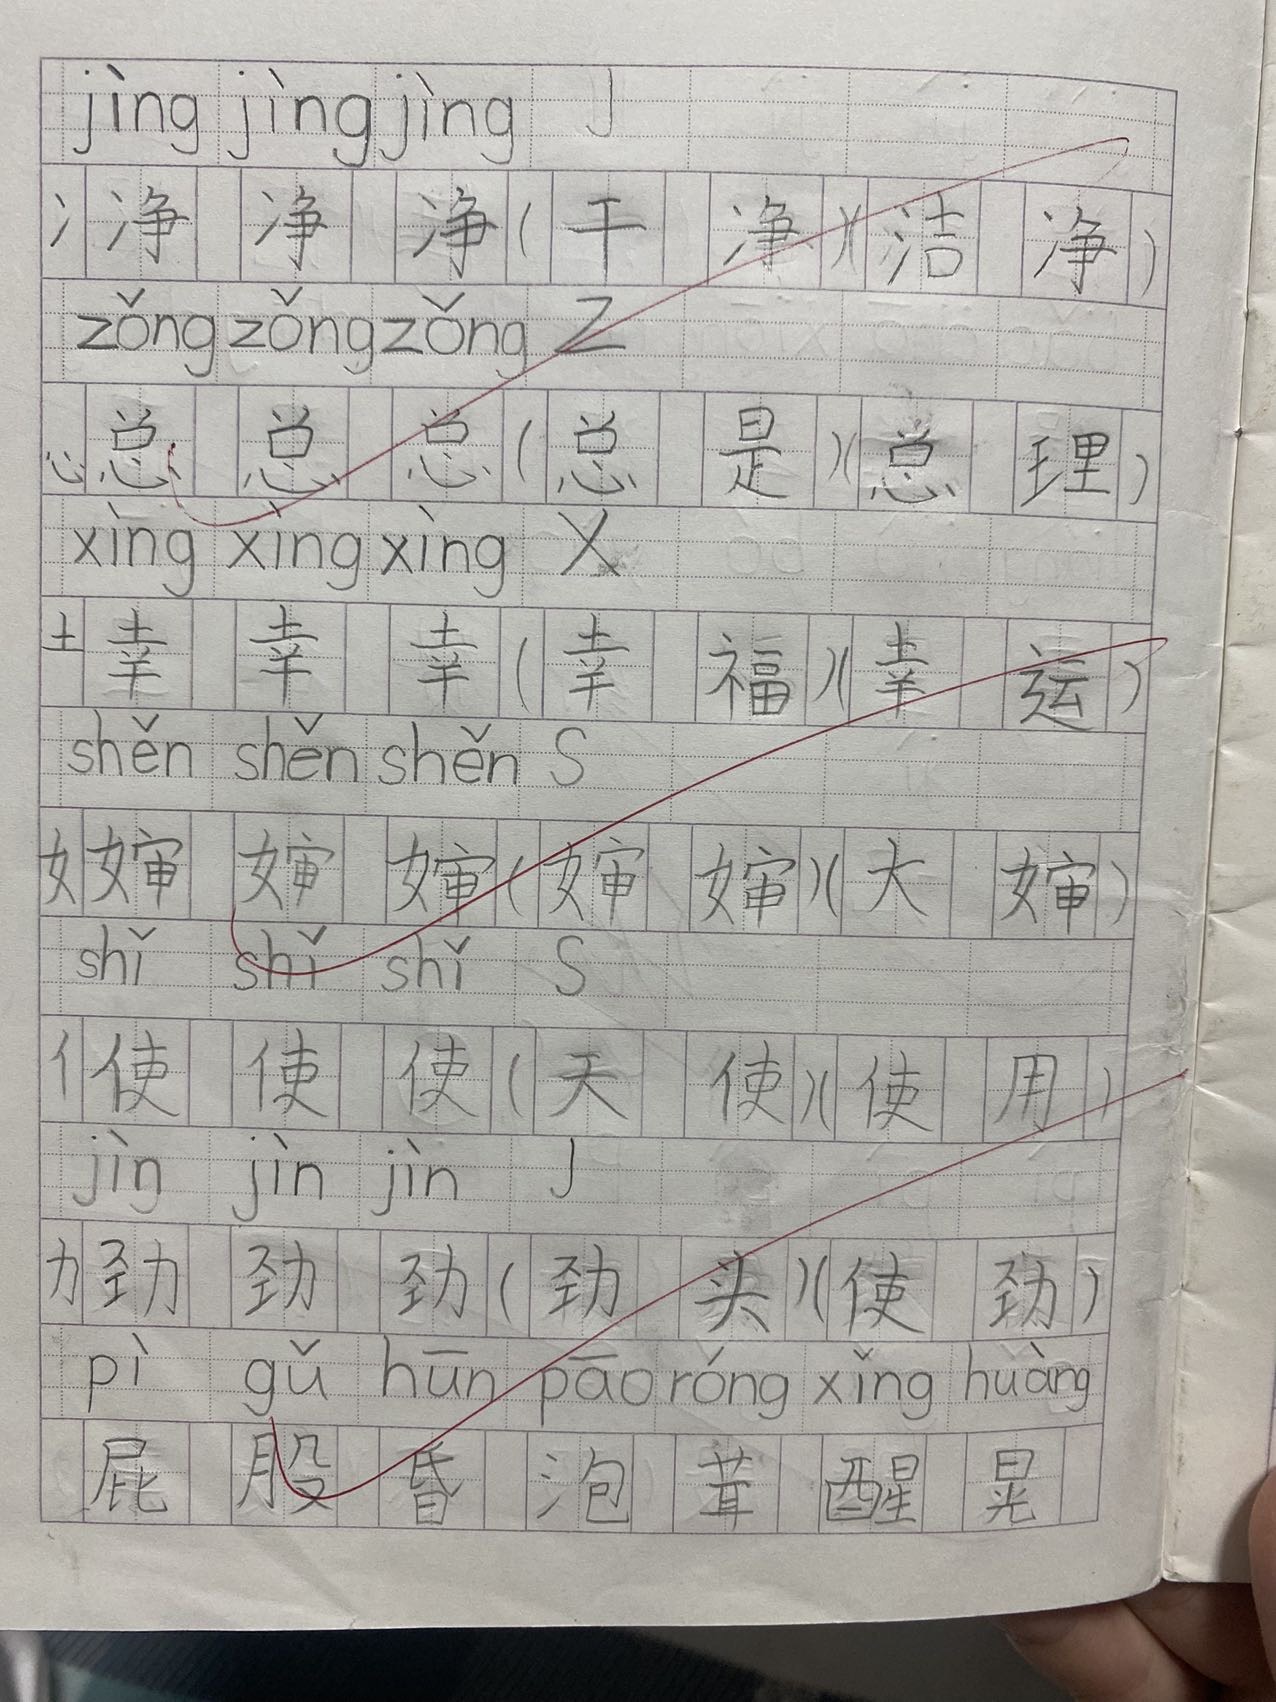 jìng jìng jìng J
冫净 净 净(干 净)(洁 净)
zǒng zǒng zǒng Z
心总 总 总(总 是)(总 理)
xìng xìng xìng X
土幸 幸 幸(幸 福)(幸 运)
shěn shěn shěn S
女婶 婶 婶(婶 婶)(大 婶)
shǐ shǐ shǐ S
亻使 使 使(天 使)(使 用)
jìn jìn jìn J
力劲 劲 劲(劲 头)(使 劲)
pì gǔ hūn pāo róng xǐng huàng
屁 股 昏 泡 茸 醒 晃